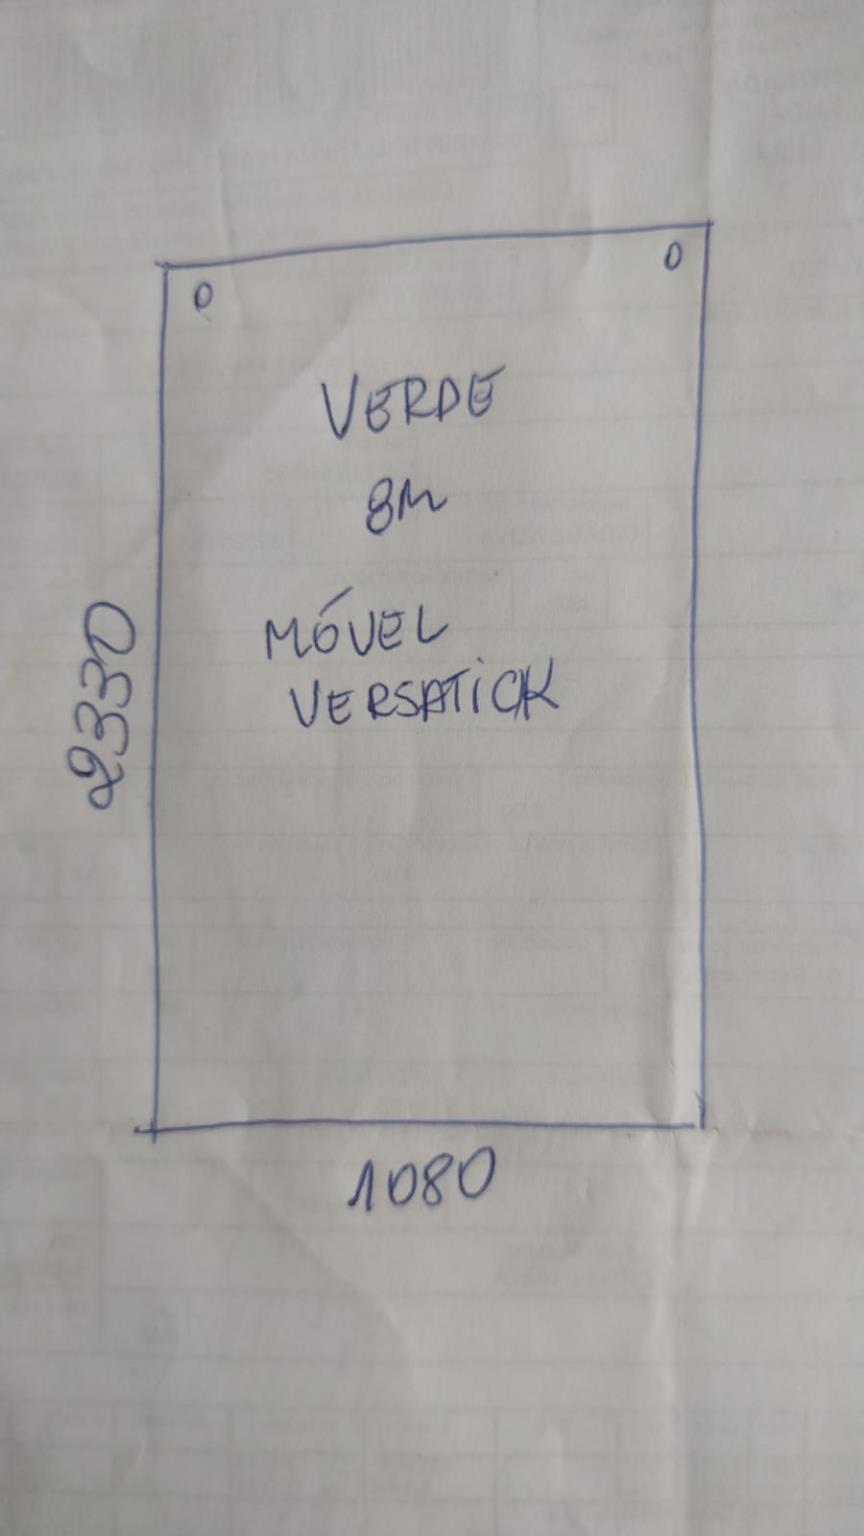 VERDE
8M
MÓVEL
VERSATICK
2330
1080